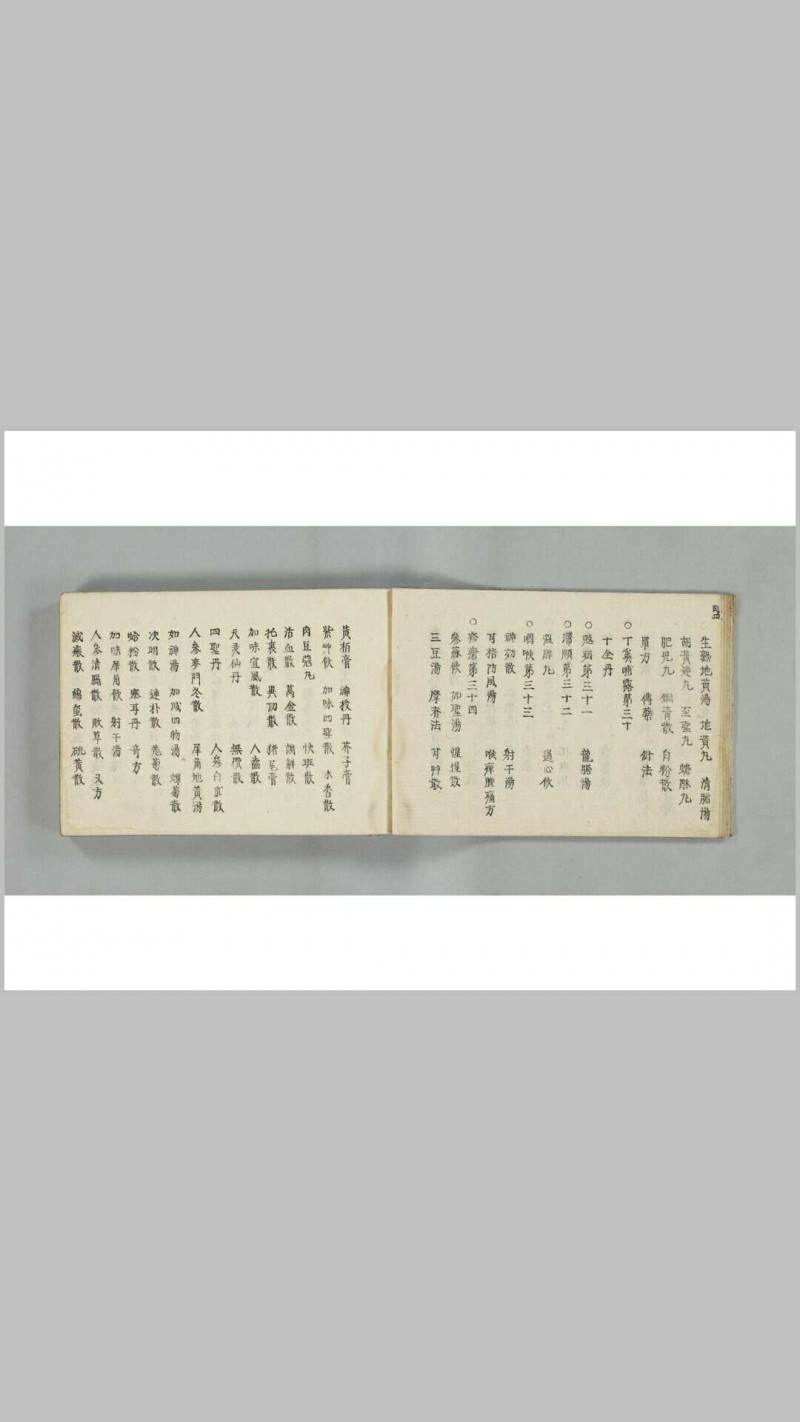 生熟地黄湯 地黄丸 清胎湯
胡黄連丸 至聖丸 蟾酥丸
肥児丸 銅青散 白粉散
單方 傅藥 針法
○丁奚哺露第三十
十全丹
○第三十一 龍膽湯
○滯頥第三十二
温脾丸 通心飲
○咽喉第三十三
神効散 射干湯
甘桔防風湯 喉痺腫痛方
○瘡第三十四
參蘇飲 如聖湯 惺惺散
三豆湯 摩脊法 甘艸散
黄栢膏 神授丹 芥子膏
紫艸飲 加味四聖散 木香散
肉豆蔻丸 快斑散
活血散 萬金散 調解散
托裏散 異功散 猪尾膏
加味宣風散 人齒散
天灵仙丹 無價散
四聖丹 人參白京散
人參麥門冬散 犀角地黄湯
如神湯 加减四物湯 蟬菊散
次明散 連扑散 兎菊散
蛤粉散 塞耳丹 奇方
加味犀角飲 射干湯
人參清膈散 敗草散 又方
滅瘢散 綿璽散 硫黄散